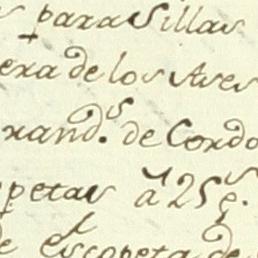 para Sillas
era de los Aves
rand.s de Cordo
petas á 25 s.
escopeta de